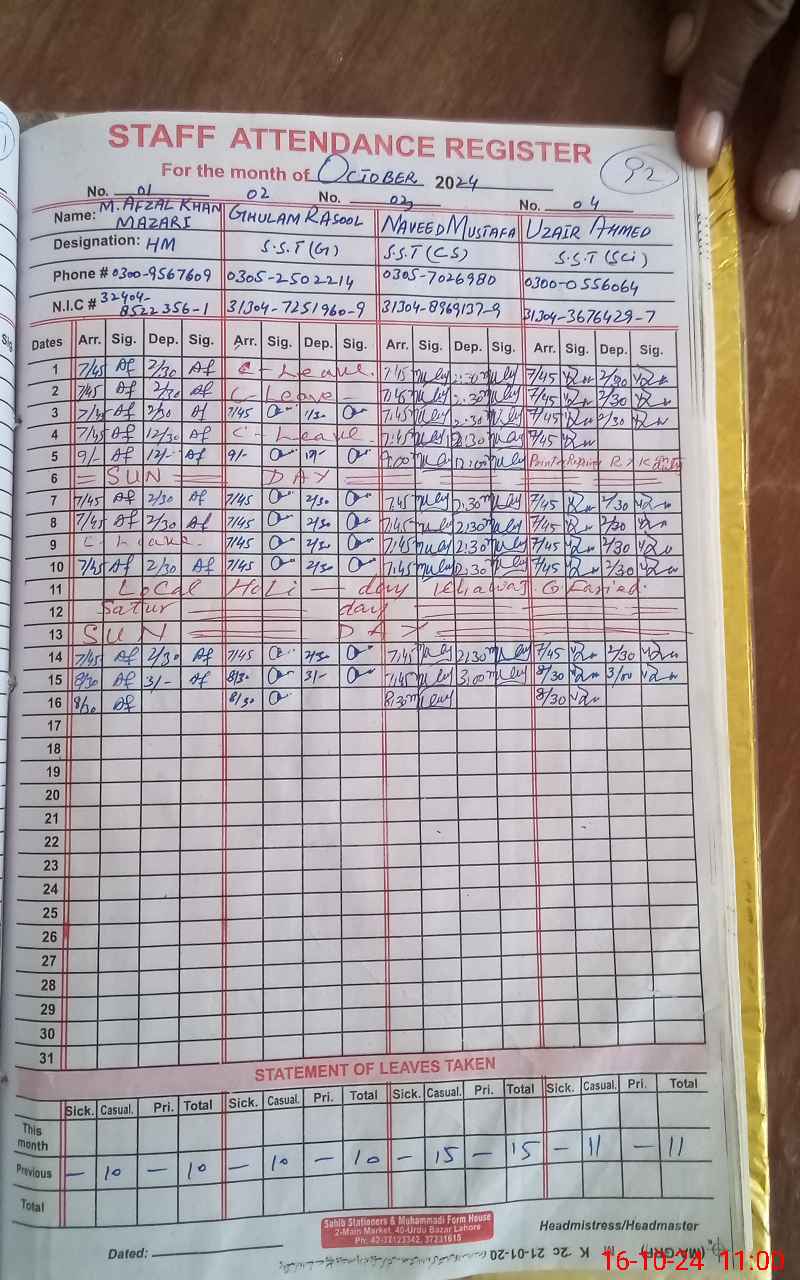 STAFF ATTENDANCE REGISTER
For the month of OCTOBER 2024 92
No. 01 02 No. 03 No. 04
Name: M. AFZAL KHAN MAZARI GHULAM RASOOL NAVEED MUSTAFA UZAIR AHMED
Designation: HM S.S.T (G) S.S.T (CS) S.S.T (SCi)
Phone # 0300-9567609 0305-2502214 0305-7026980 0300-0556064
N.I.C # 32404-8522356-1 31304-7251960-9 31304-8969137-9 31304-3676429-7
Dates Arr. Sig. Dep. Sig. Arr. Sig. Dep. Sig. Arr. Sig. Dep. Sig. Arr. Sig. Dep. Sig.
1 7/45 Af 2/30 Af C-Leave. 7:45 2:30 7/45 2/30
2 7/45 Af 2/30 Af C-Leave- 7:45 2:30 7/45 2/30
3 7/45 Af 2/30 Af 7/45 1/30 7:45 2:30 7/45 2/30
4 7/45 Af 12/30 Af C-Leave- 7:45 12:30 7/45
5 9/- Af 12/- Af 9/- 12/- 9:00 12:00
6 = SUN DAY
7 7/45 Af 2/30 Af 7/45 2/30 7:45 2:30 7/45 2/30
8 7/45 Af 2/30 Af 7/45 2/30 7:45 2:30 7/45 2/30
9 C-Leave. 7/45 2/30 7:45 2:30 7/45 2/30
10 7/45 Af 2/30 Af 7/45 2/30 7:45 2:30 7/45 2/30
11 Local Holi-day Khawaj G Faried.
12 Satur day
13 SUN DAY
14 7/45 Af 2/30 Af 7/45 2/30 7:45 2:30 7/45 2/30
15 8/30 Af 3/- Af 8/30 3/- 7:45 3:00 8/30 3/00
16 8/30 Af 8/30 8:30 8/30
17
18
19
20
21
22
23
24
25
26
27
28
29
30
31
STATEMENT OF LEAVES TAKEN
Sick. Casual. Pri. Total Sick. Casual. Pri. Total Sick. Casual. Pri. Total Sick. Casual. Pri. Total
This month
Previous - 10 - 10 - 10 - 10 - 15 - 15 - 11 - 11
Total
Sahib Stationers & Muhammadi Form House
2-Main Market, 40-Urdu Bazar Lahore
Ph: 42-37123342, 37231615
Headmistress/Headmaster
Dated:
16-10-24 11:00